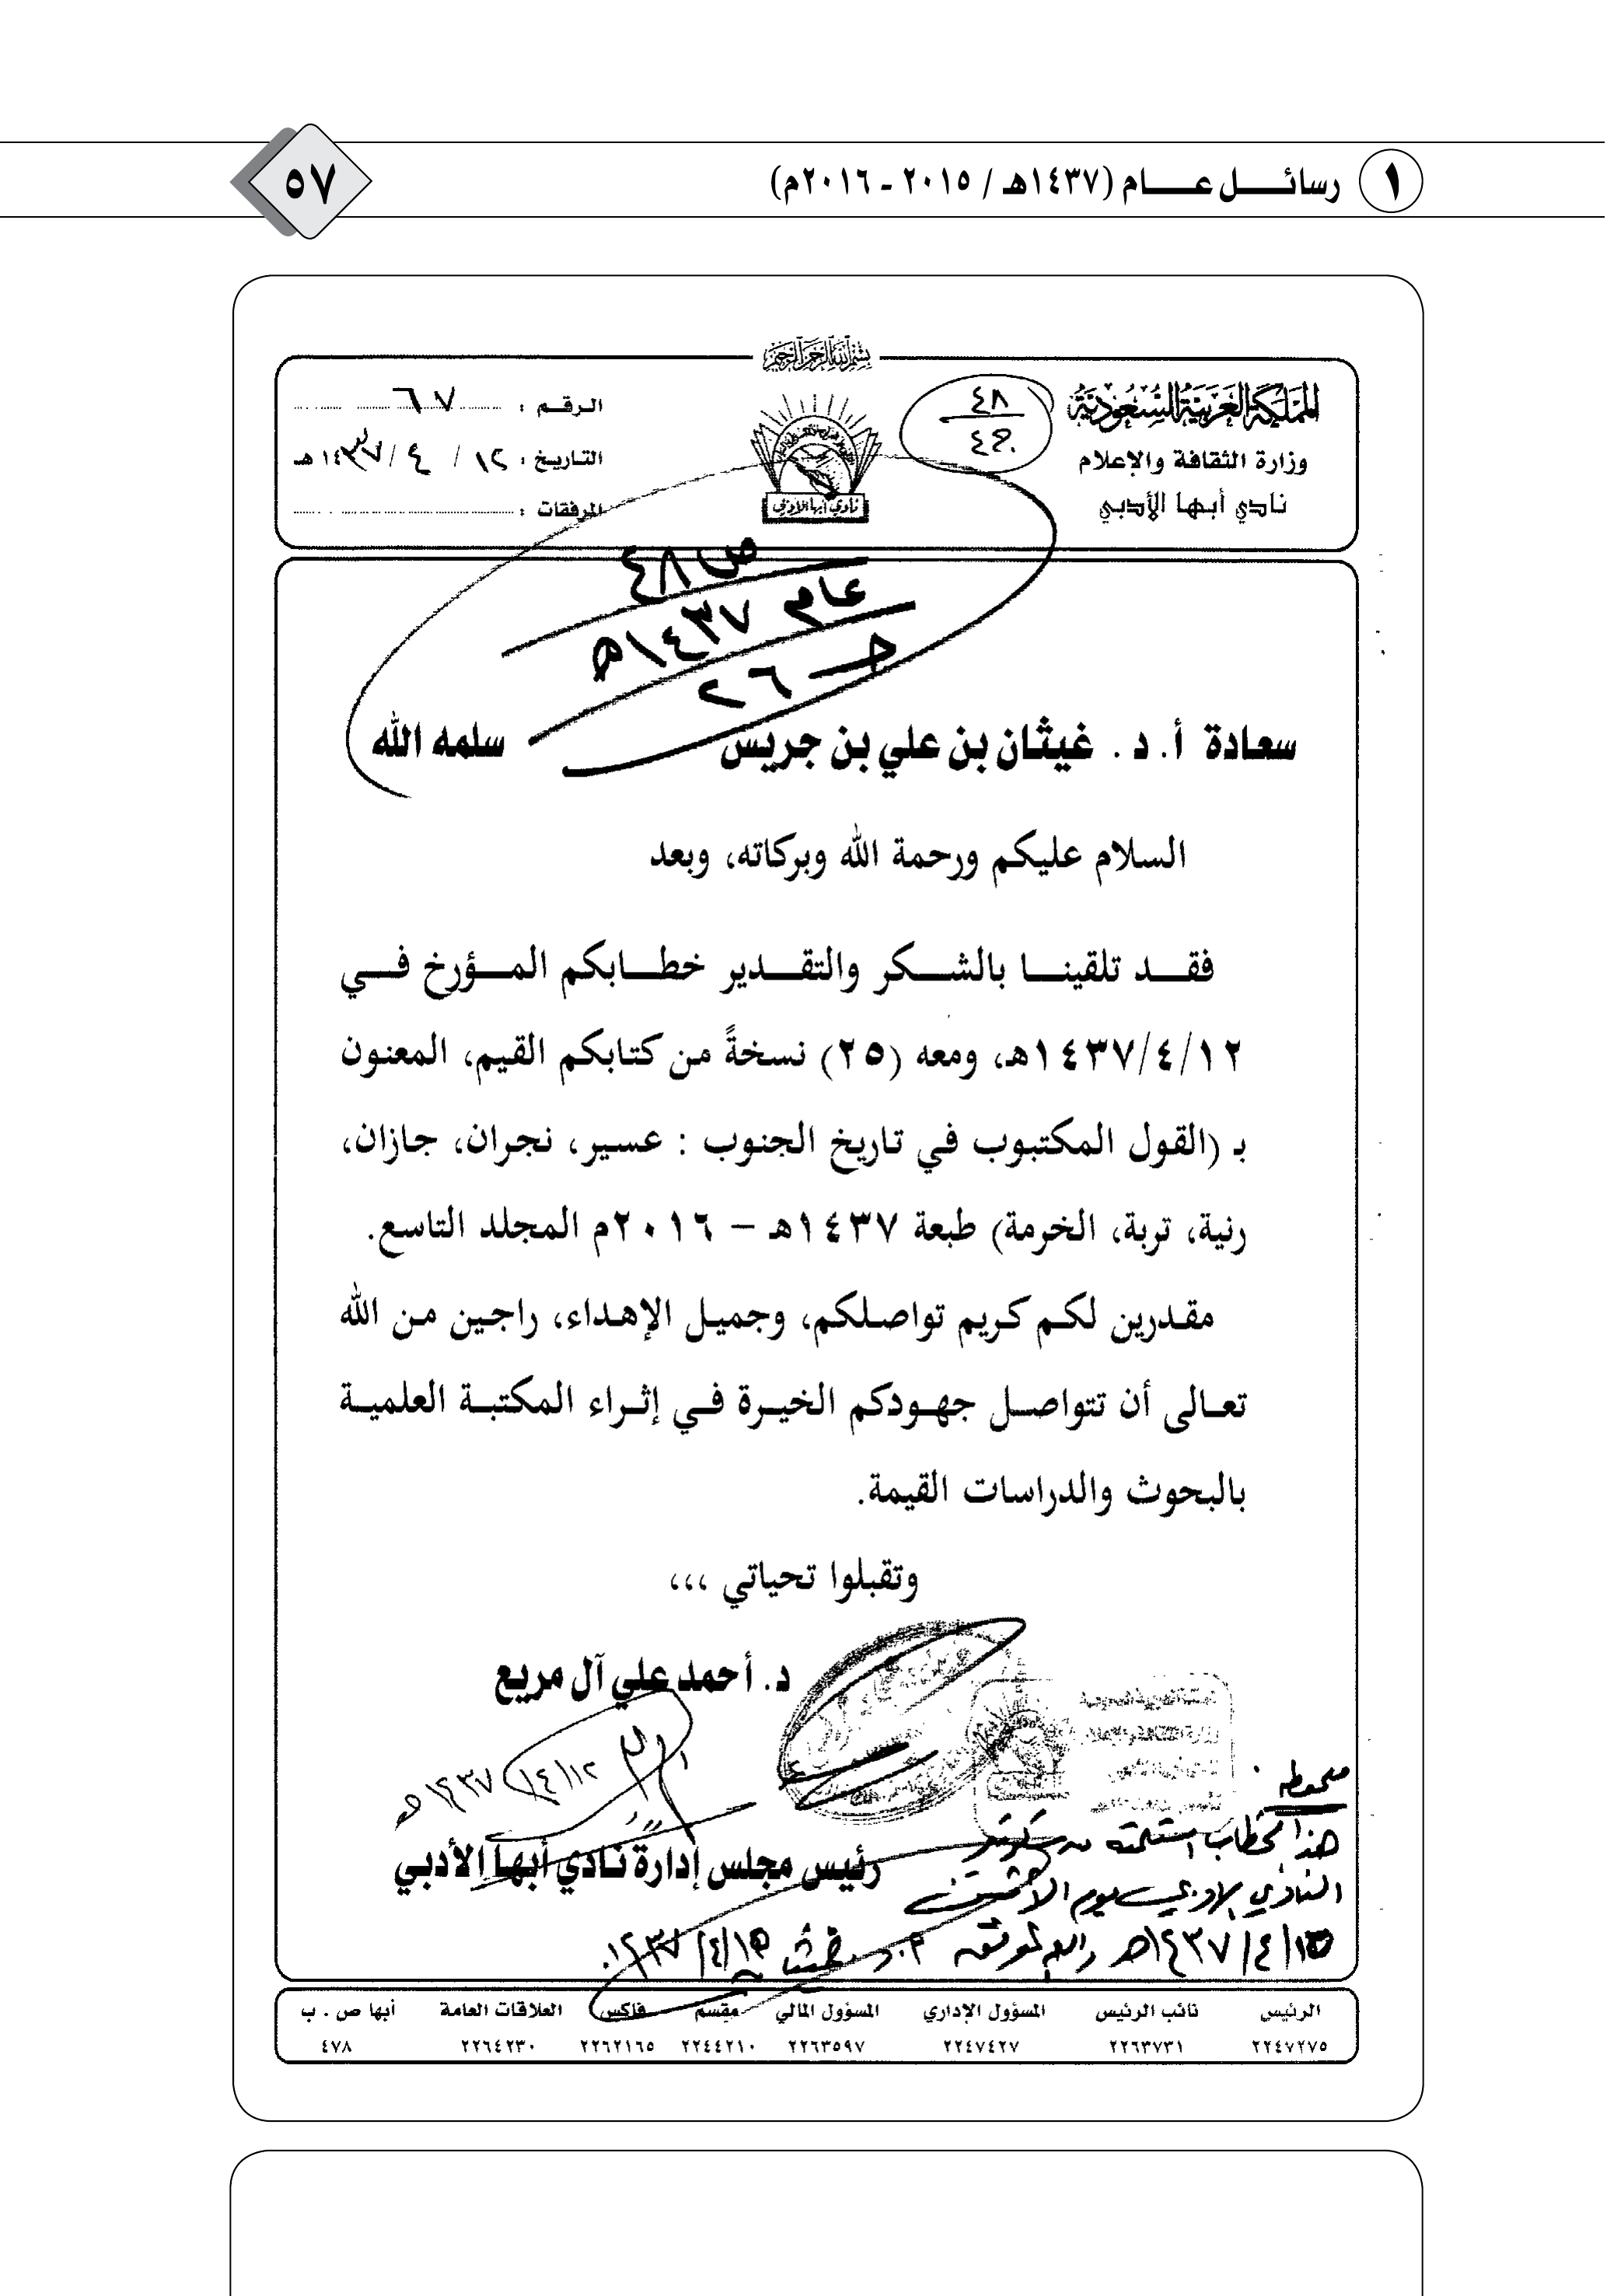 ١ رسائل عام (١٤٣٧هـ / ٢٠١٥ - ٢٠١٦م)
٥٧
بسم الله الرحمن الرحيم
المملكة العربية السعودية
وزارة الثقافة والإعلام
نادي أبها الأدبي
٤٨
نادي أبها الأدبي
الرقم : ٦٧
التاريخ : ١٢ / ٤ / ١٤٣٧هـ
المرفقات :
ص ٤٨
عام ١٤٣٧هـ
جـ ٢٦
سعادة أ. د . غيثان بن علي بن جريس سلمه الله
السلام عليكم ورحمة الله وبركاته، وبعد
فقد تلقينا بالشكر والتقدير خطابكم المؤرخ في
١٤٣٧/٤/١٢هـ، ومعه (٢٥) نسخةً من كتابكم القيم، المعنون
بـ (القول المكتبوب في تاريخ الجنوب : عسير، نجران، جازان،
رنية، تربة، الخرمة) طبعة ١٤٣٧هـ – ٢٠١٦م المجلد التاسع.
مقدرين لكم كريم تواصلكم، وجميل الإهداء، راجين من الله
تعالى أن تتواصل جهودكم الخيرة في إثراء المكتبة العلمية
بالبحوث والدراسات القيمة.
وتقبلوا تحياتي ،،،
د. أحمد علي آل مريع
١٤٣٧/٤/١٢هـ
رئيس مجلس إدارة نادي أبها الأدبي
ملحوظة
هذا الخطاب استلمته من سكرتير
النادي الأدبي يوم الاثنين
١٤٣٧/٤/١٥هـ والله الموفق أ.د. غيثان ١٤٣٧/٤/١٥
الرئيس نائب الرئيس المسؤول الإداري المسؤول المالي مقسم فاكس العلاقات العامة أبها ص . ب
٢٢٤٧٢٧٥ ٢٢٦٣٧٣١ ٢٢٤٧٤٢٧ ٢٢٦٣٥٩٧ ٢٢٤٤٢١٠ ٢٢٦٢١٦٥ ٢٢٦٤٢٣٠ ٤٧٨